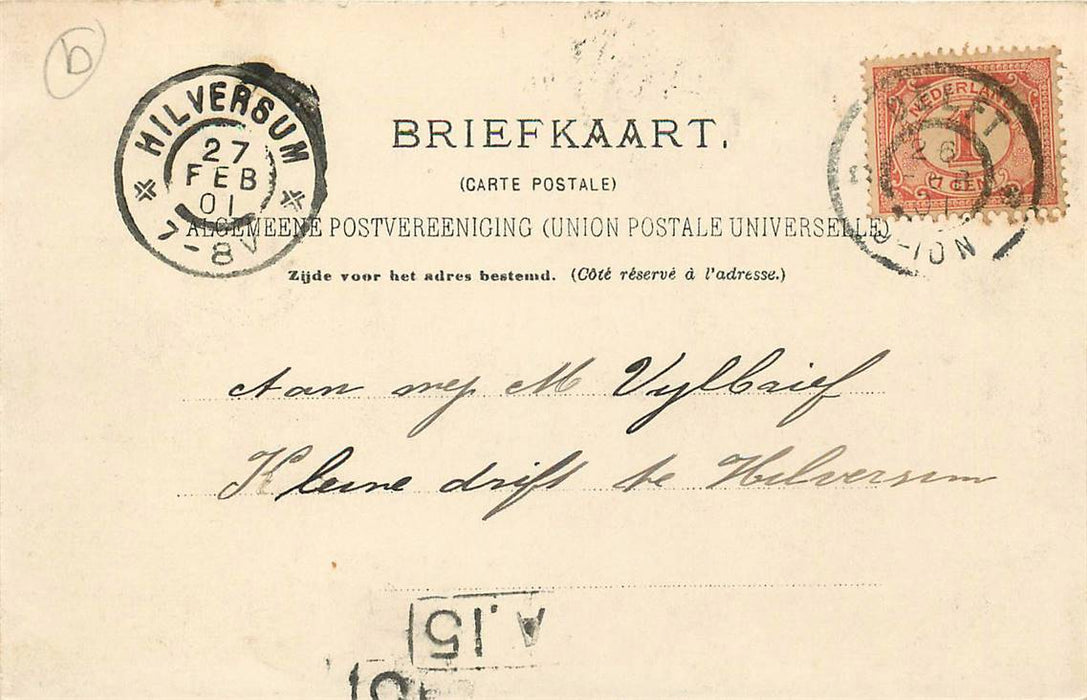 b
HILVERSUM
27
FEB
01
7-8V
BRIEFKAART.
(CARTE POSTALE)
ALGEMEENE POSTVEREENIGING (UNION POSTALE UNIVERSELLE)
Zijde voor het adres bestemd. (Côté réservé à l'adresse.)
NEDERLAND
1
CENT
DELFT
26
Aan mej M Vylbrief
Kleine drift te Hilversum
A.15